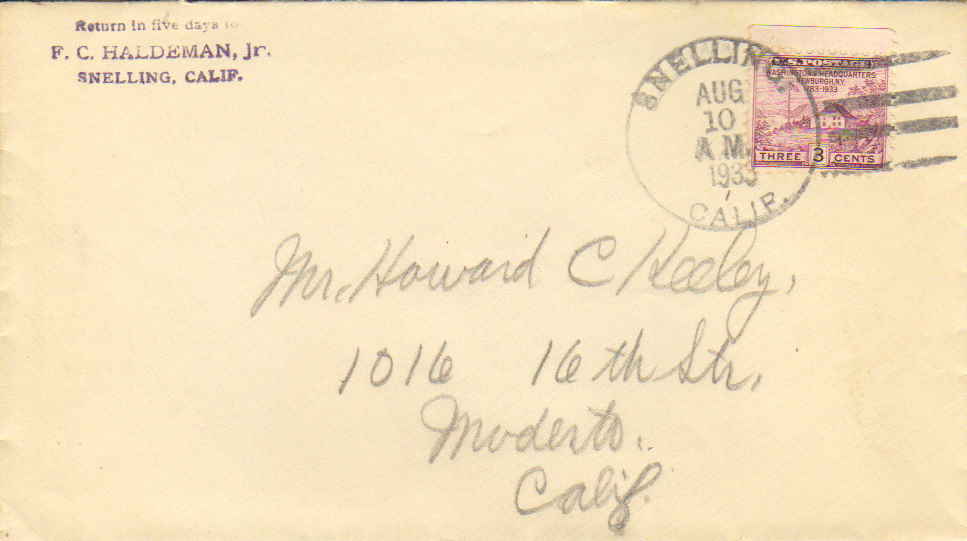 Return in five days to
F. C. HALDEMAN, Jr.
SNELLING, CALIF.
SNELLING.
AUG
10
A.M.
1933
CALIF.
U.S. POSTAGE
WASHINGTON'S HEADQUARTERS
NEWBURGH, N.Y.
1783-1933
THREE 3 CENTS
Mr. Howard C Keeley,
1016 16th Str,
Modesto.
Calif.